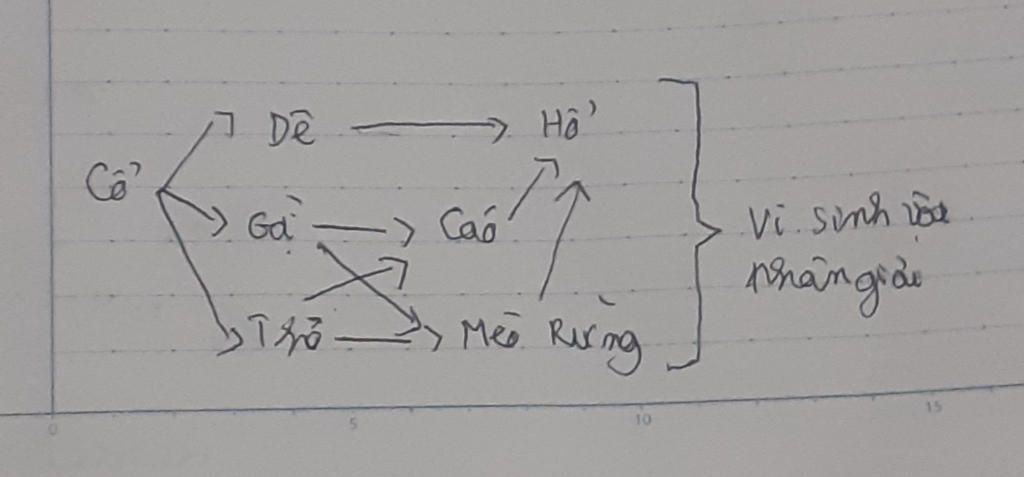 Dê Hổ
Cỏ
Gà Cáo
Thỏ Mèo Rừng
Vi sinh vật
phân giải
0 5 10 15